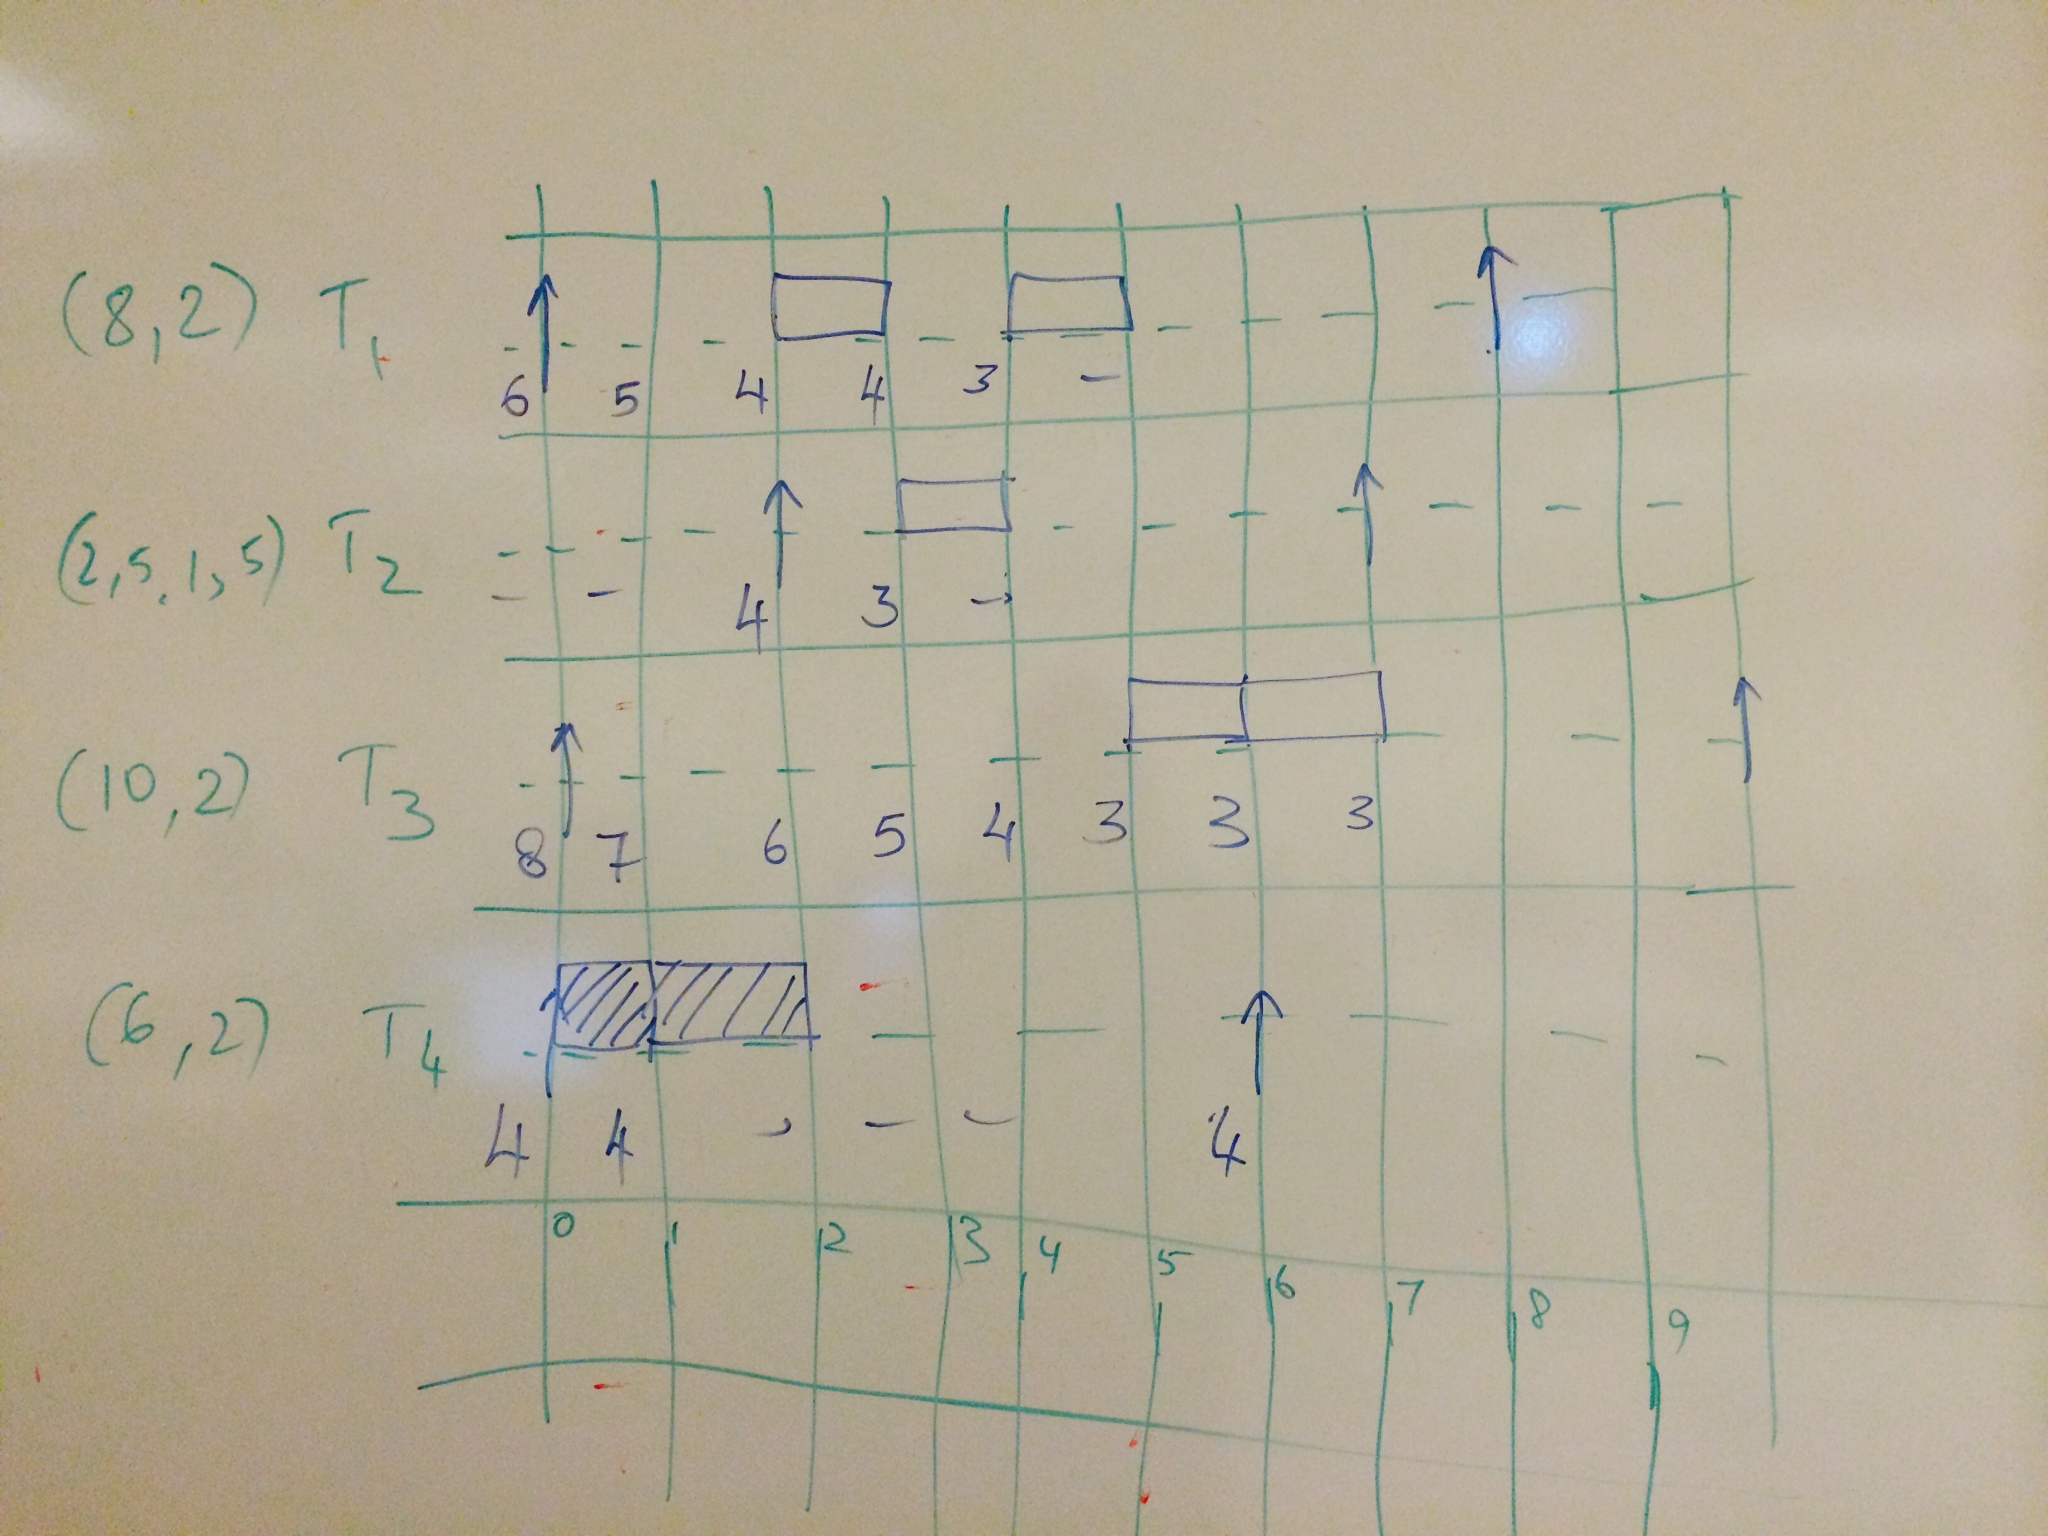 (8,2) T1
6 5 4 4 3 -
(2,5,1,5) T2
- - 4 3 -
(10,2) T3
8 7 6 5 4 3 3 3
(6,2) T4
4 4 - - - 4
0 1 2 3 4 5 6 7 8 9